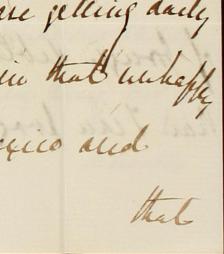 are getting daily
in that unhappy
exico and
that